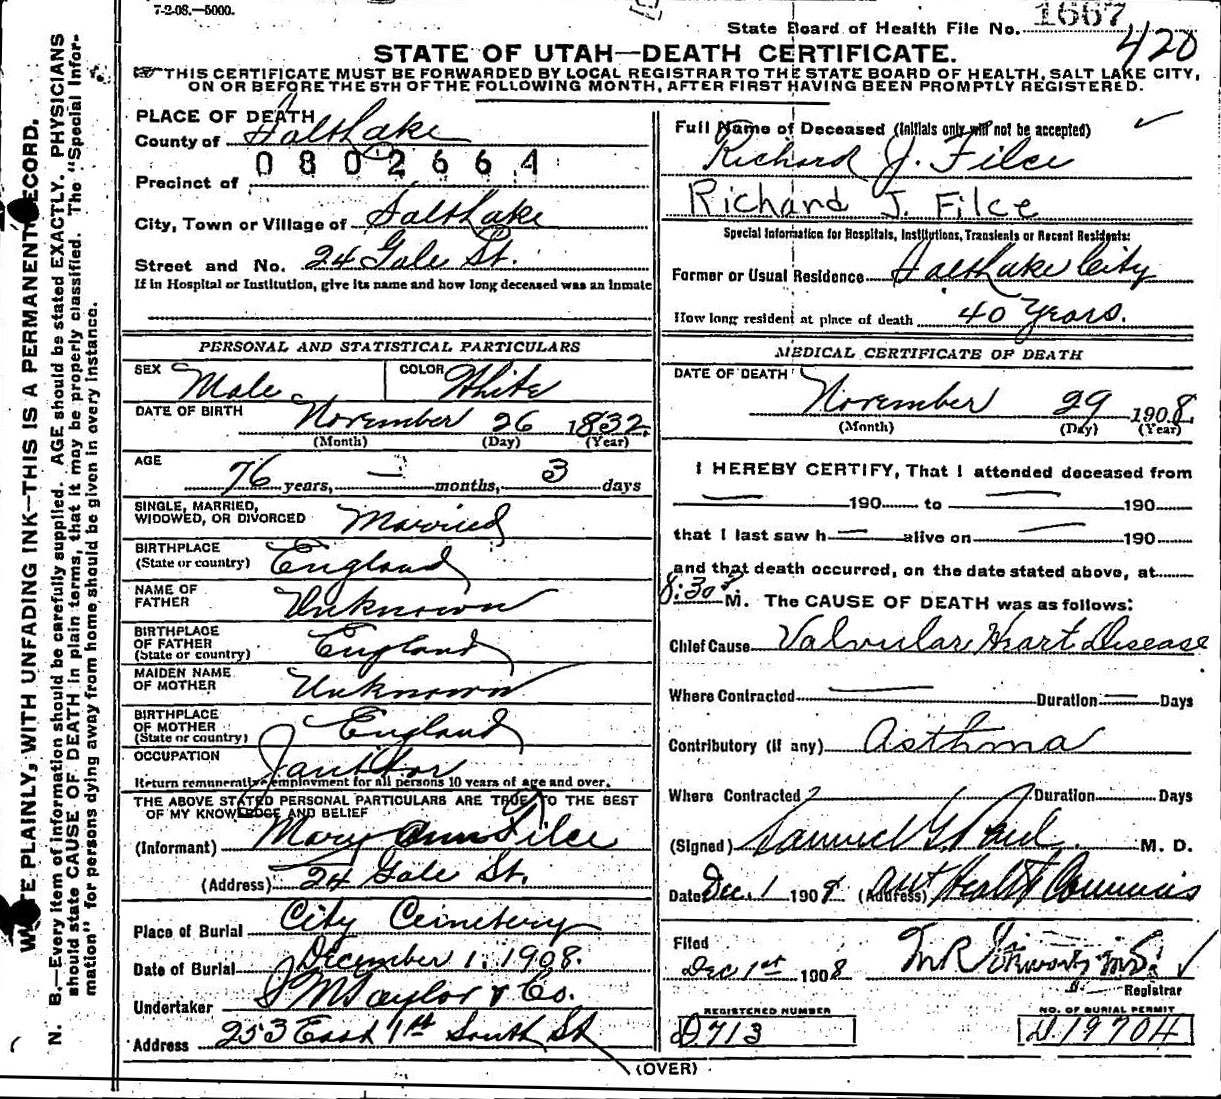 7-2-08.—5000.
State Board of Health File No. 1667
420
STATE OF UTAH—DEATH CERTIFICATE.
THIS CERTIFICATE MUST BE FORWARDED BY LOCAL REGISTRAR TO THE STATE BOARD OF HEALTH, SALT LAKE CITY,
ON OR BEFORE THE 5TH OF THE FOLLOWING MONTH, AFTER FIRST HAVING BEEN PROMPTLY REGISTERED.
WRITE PLAINLY, WITH UNFADING INK—THIS IS A PERMANENT RECORD.
N. B.—Every item of information should be carefully supplied. AGE should be stated EXACTLY. PHYSICIANS
should state CAUSE OF DEATH in plain terms, that it may be properly classified. The "Special Infor-
mation" for persons dying away from home should be given in every instance.
PLACE OF DEATH
County of Salt Lake
0802664
Precinct of
City, Town or Village of Salt Lake
Street and No. 24 Gale St.
If in Hospital or Institution, give its name and how long deceased was an inmate
PERSONAL AND STATISTICAL PARTICULARS
SEX Male COLOR White
DATE OF BIRTH November 26 1832
(Month) (Day) (Year)
AGE
76 years, — months, 3 days
SINGLE, MARRIED,
WIDOWED, OR DIVORCED Married
BIRTHPLACE
(State or country) England
NAME OF
FATHER Unknown
BIRTHPLACE
OF FATHER
(State or country) England
MAIDEN NAME
OF MOTHER Unknown
BIRTHPLACE
OF MOTHER
(State or country) England
OCCUPATION Janitor
Return remunerative employment for all persons 10 years of age and over.
THE ABOVE STATED PERSONAL PARTICULARS ARE TRUE TO THE BEST
OF MY KNOWLEDGE AND BELIEF
(Informant) Mary Ann Filce
(Address) 24 Gale St.
Place of Burial City Cemetery
Date of Burial December 1. 1908.
Undertaker S M Taylor & Co.
Address 253 East 1st South St
Full Name of Deceased (Initials only will not be accepted)
Richard J. Filce
Richard J. Filce
Special Information for Hospitals, Institutions, Transients or Recent Residents:
Former or Usual Residence Salt Lake City
How long resident at place of death 40 Years.
MEDICAL CERTIFICATE OF DEATH
DATE OF DEATH
November 29 1908
(Month) (Day) (Year)
I HEREBY CERTIFY, That I attended deceased from
— 190 to — 190
that I last saw h— alive on — 190
and that death occurred, on the date stated above, at
8:30 M. The CAUSE OF DEATH was as follows:
Chief Cause Valvular Heart Disease
Where Contracted — Duration — Days
Contributory (if any) Asthma
Where Contracted ? Duration Days
(Signed) Samuel G. Paul M. D.
Date Dec. 1 1908 (Address) Health Commis
Filed
Dec 1st 1908
Registrar
REGISTERED NUMBER
D713
NO. OF BURIAL PERMIT
D.19704
(OVER)